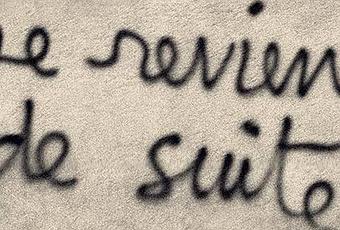 e revien
de suite